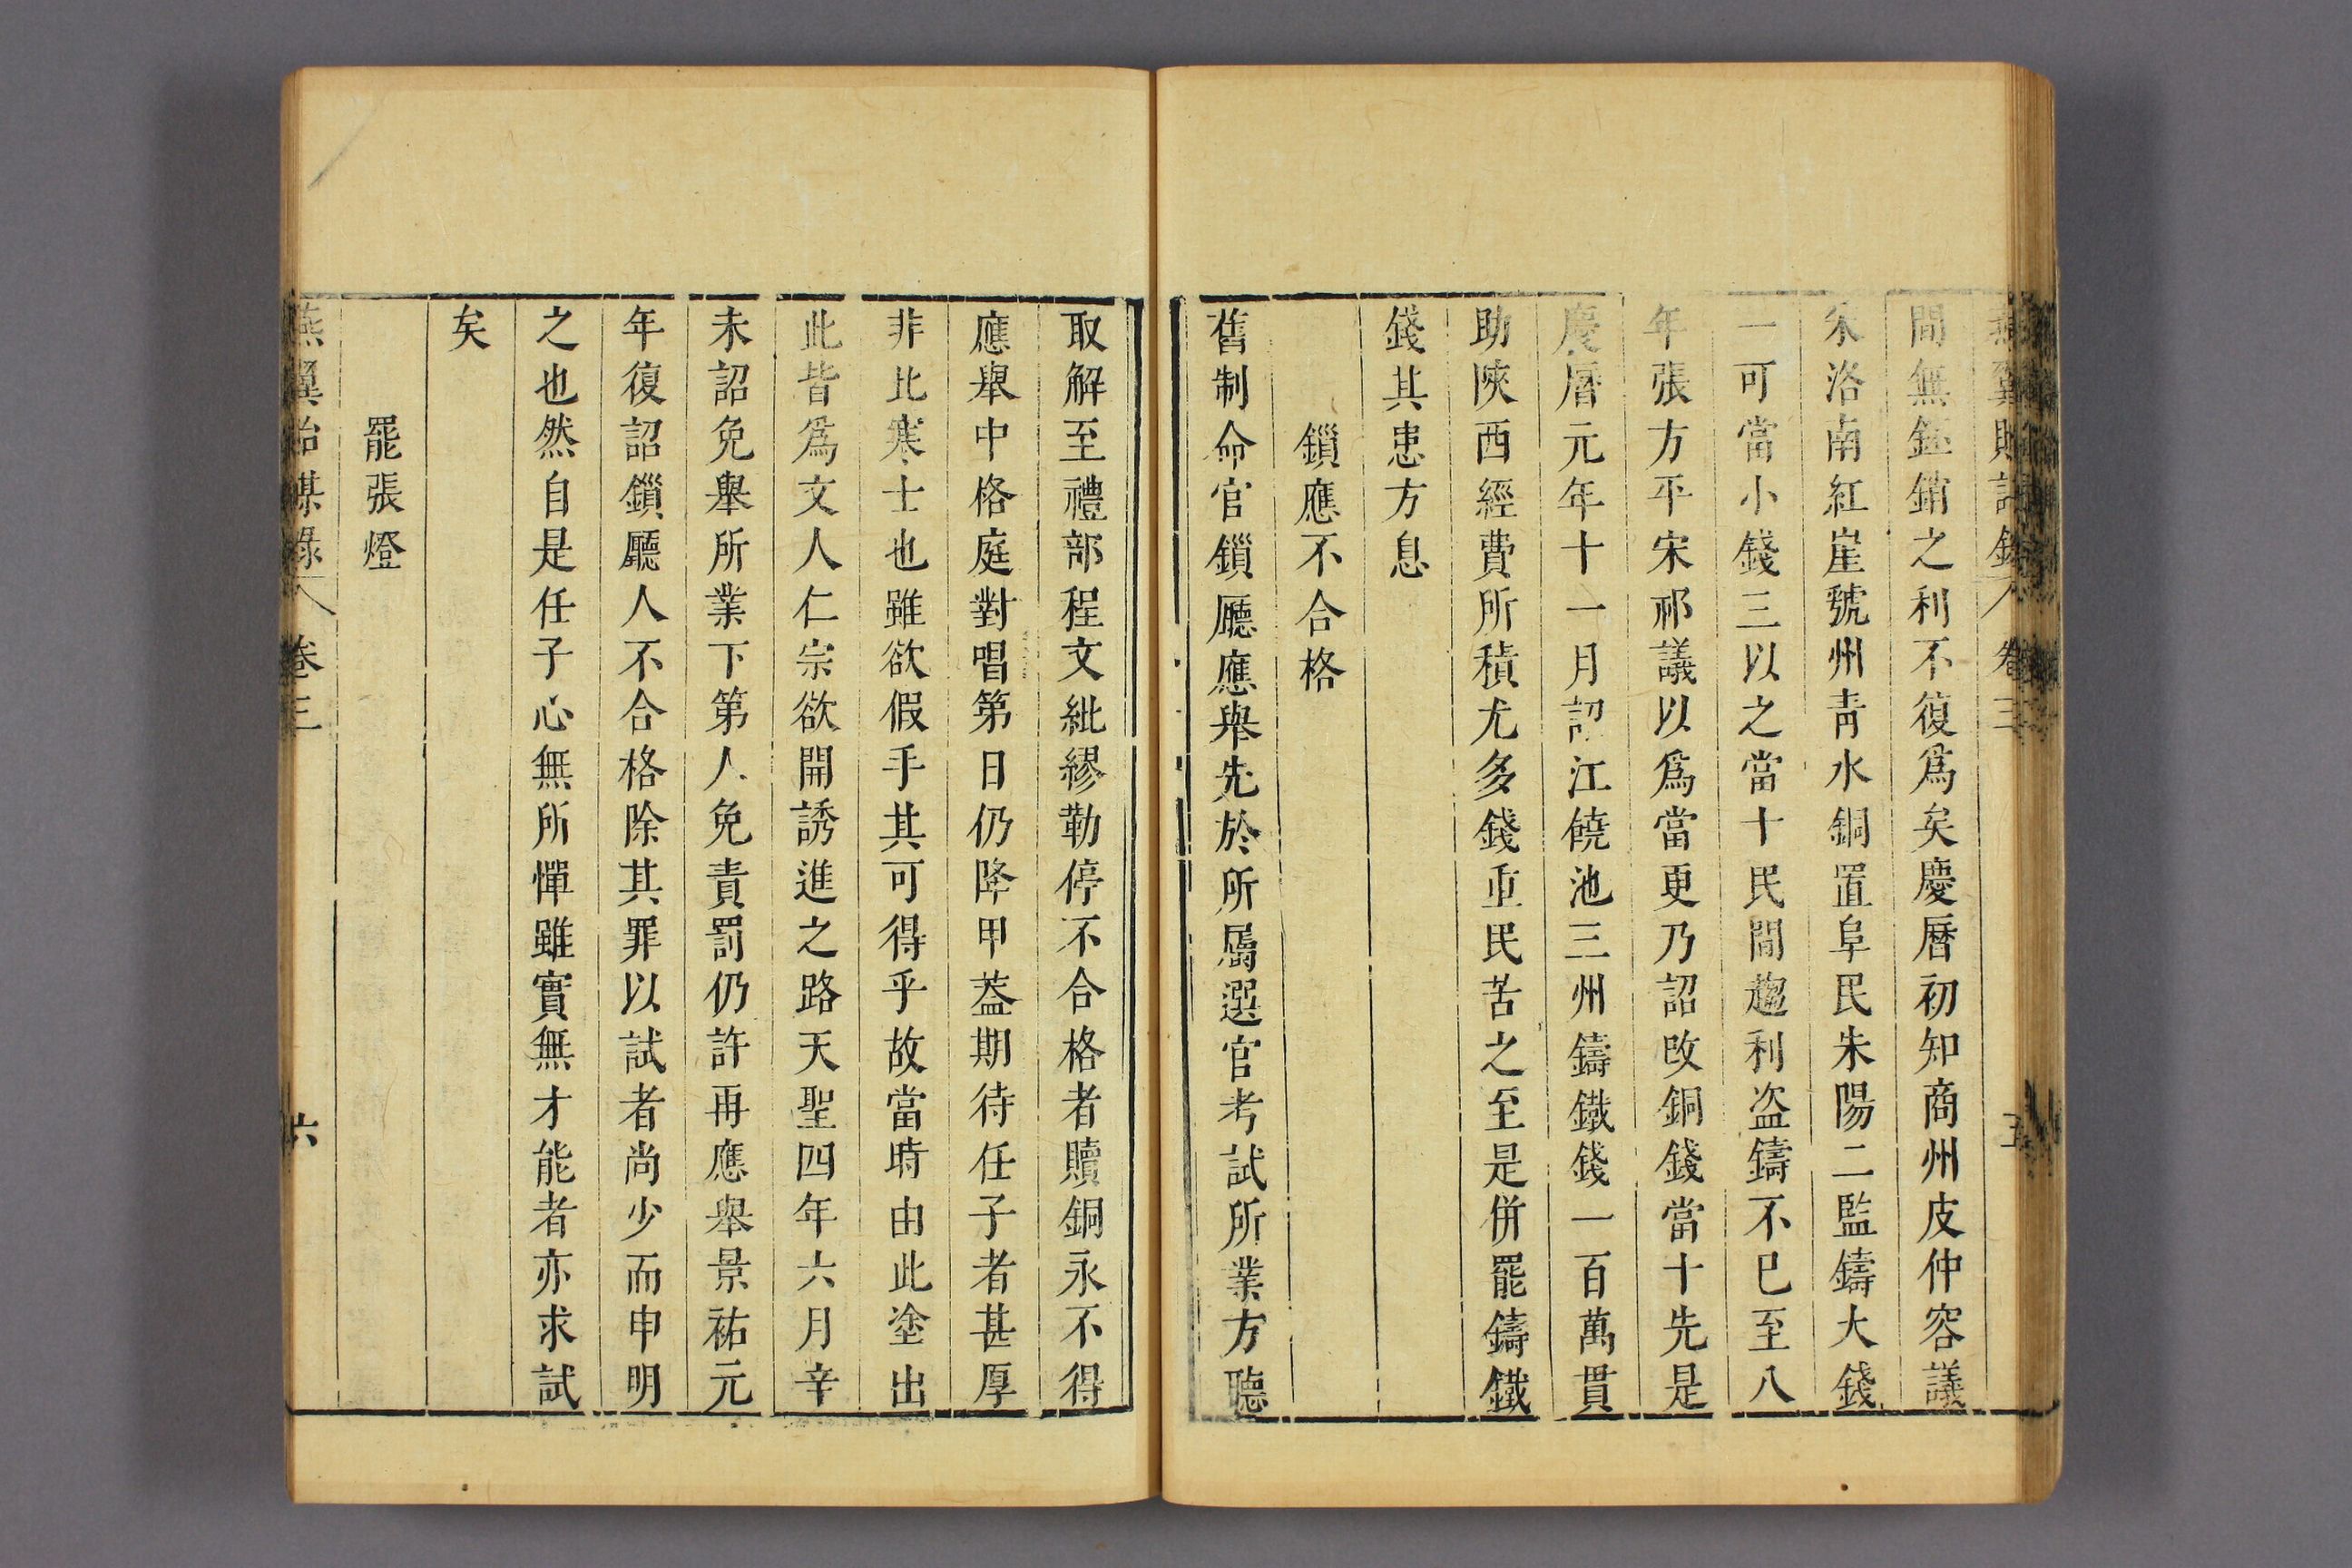 燕翼貽謀錄 卷三 五
間無鉟銷之利不復爲矣慶曆初知商州皮仲容議
采洛南紅崖虢州靑水銅置阜民朱陽二監鑄大錢
一可當小錢三以之當十民間趨利盗鑄不已至八
年張方平宋祁議以爲當更乃詔改銅錢當十先是
慶曆元年十一月詔江饒池三州鑄鐵錢一百萬貫
助陝西經費所積尤多錢重民苦之至是併罷鑄鐵
錢其患方息
鎻應不合格
舊制命官鎻廳應舉先於所屬選官考試所業方聽
取解至禮部程文紕繆勒停不合格者贖銅永不得
應舉中格庭對唱第日仍降甲葢期待任子者甚厚
非比寒士也雖欲假手其可得乎故當時由此塗出
此皆爲文人仁宗欲開誘進之路天聖四年六月辛
未詔免舉所業下第人免責罰仍許再應舉景祐元
年復詔鎻廳人不合格除其罪以試者尚少而申明
之也然自是任子心無所憚雖實無才能者亦求試
矣
罷張燈
燕翼詒謀錄 卷三 六